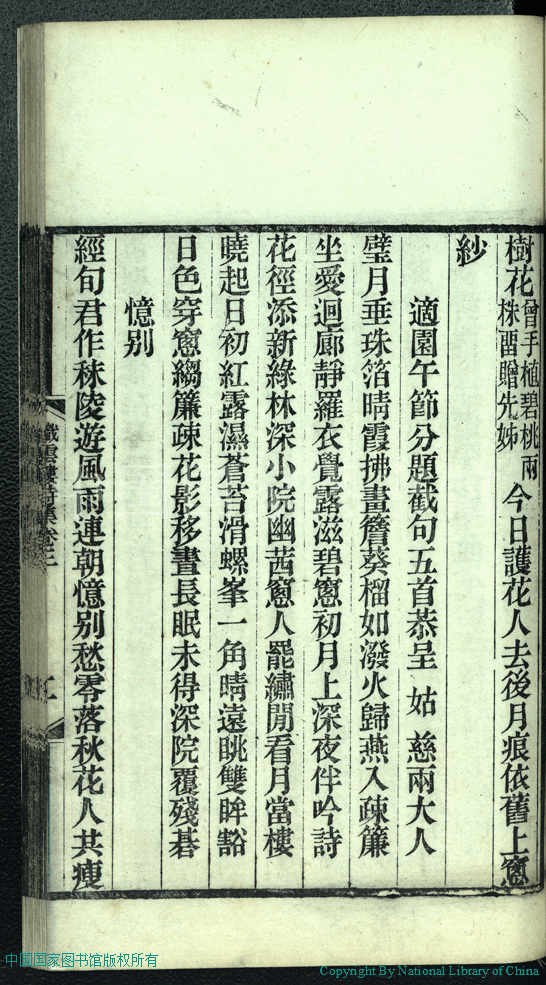 樹花曾手植碧桃兩株畱贈先姊今日護花人去後月痕依舊上窻
紗
適園午節分題截句五首恭呈 姑 慈兩大人
璧月垂珠箔晴霞拂畫簷葵榴如潑火歸燕入疎簾
坐愛迴廊靜羅衣覺露滋碧窻初月上深夜伴吟詩
花徑添新綠林深小院幽茜窻人罷繡閒看月當樓
曉起日初紅露濕蒼苔滑螺峯一角晴遠眺雙眸豁
日色穿窻縐簾疎花影移晝長眠未得深院覆殘碁
憶别
經旬君作秣陵遊風雨連朝憶别愁零落秋花人共瘦
織雲樓詩集卷三
中国国家图书馆版权所有
Copyright By National Library of China